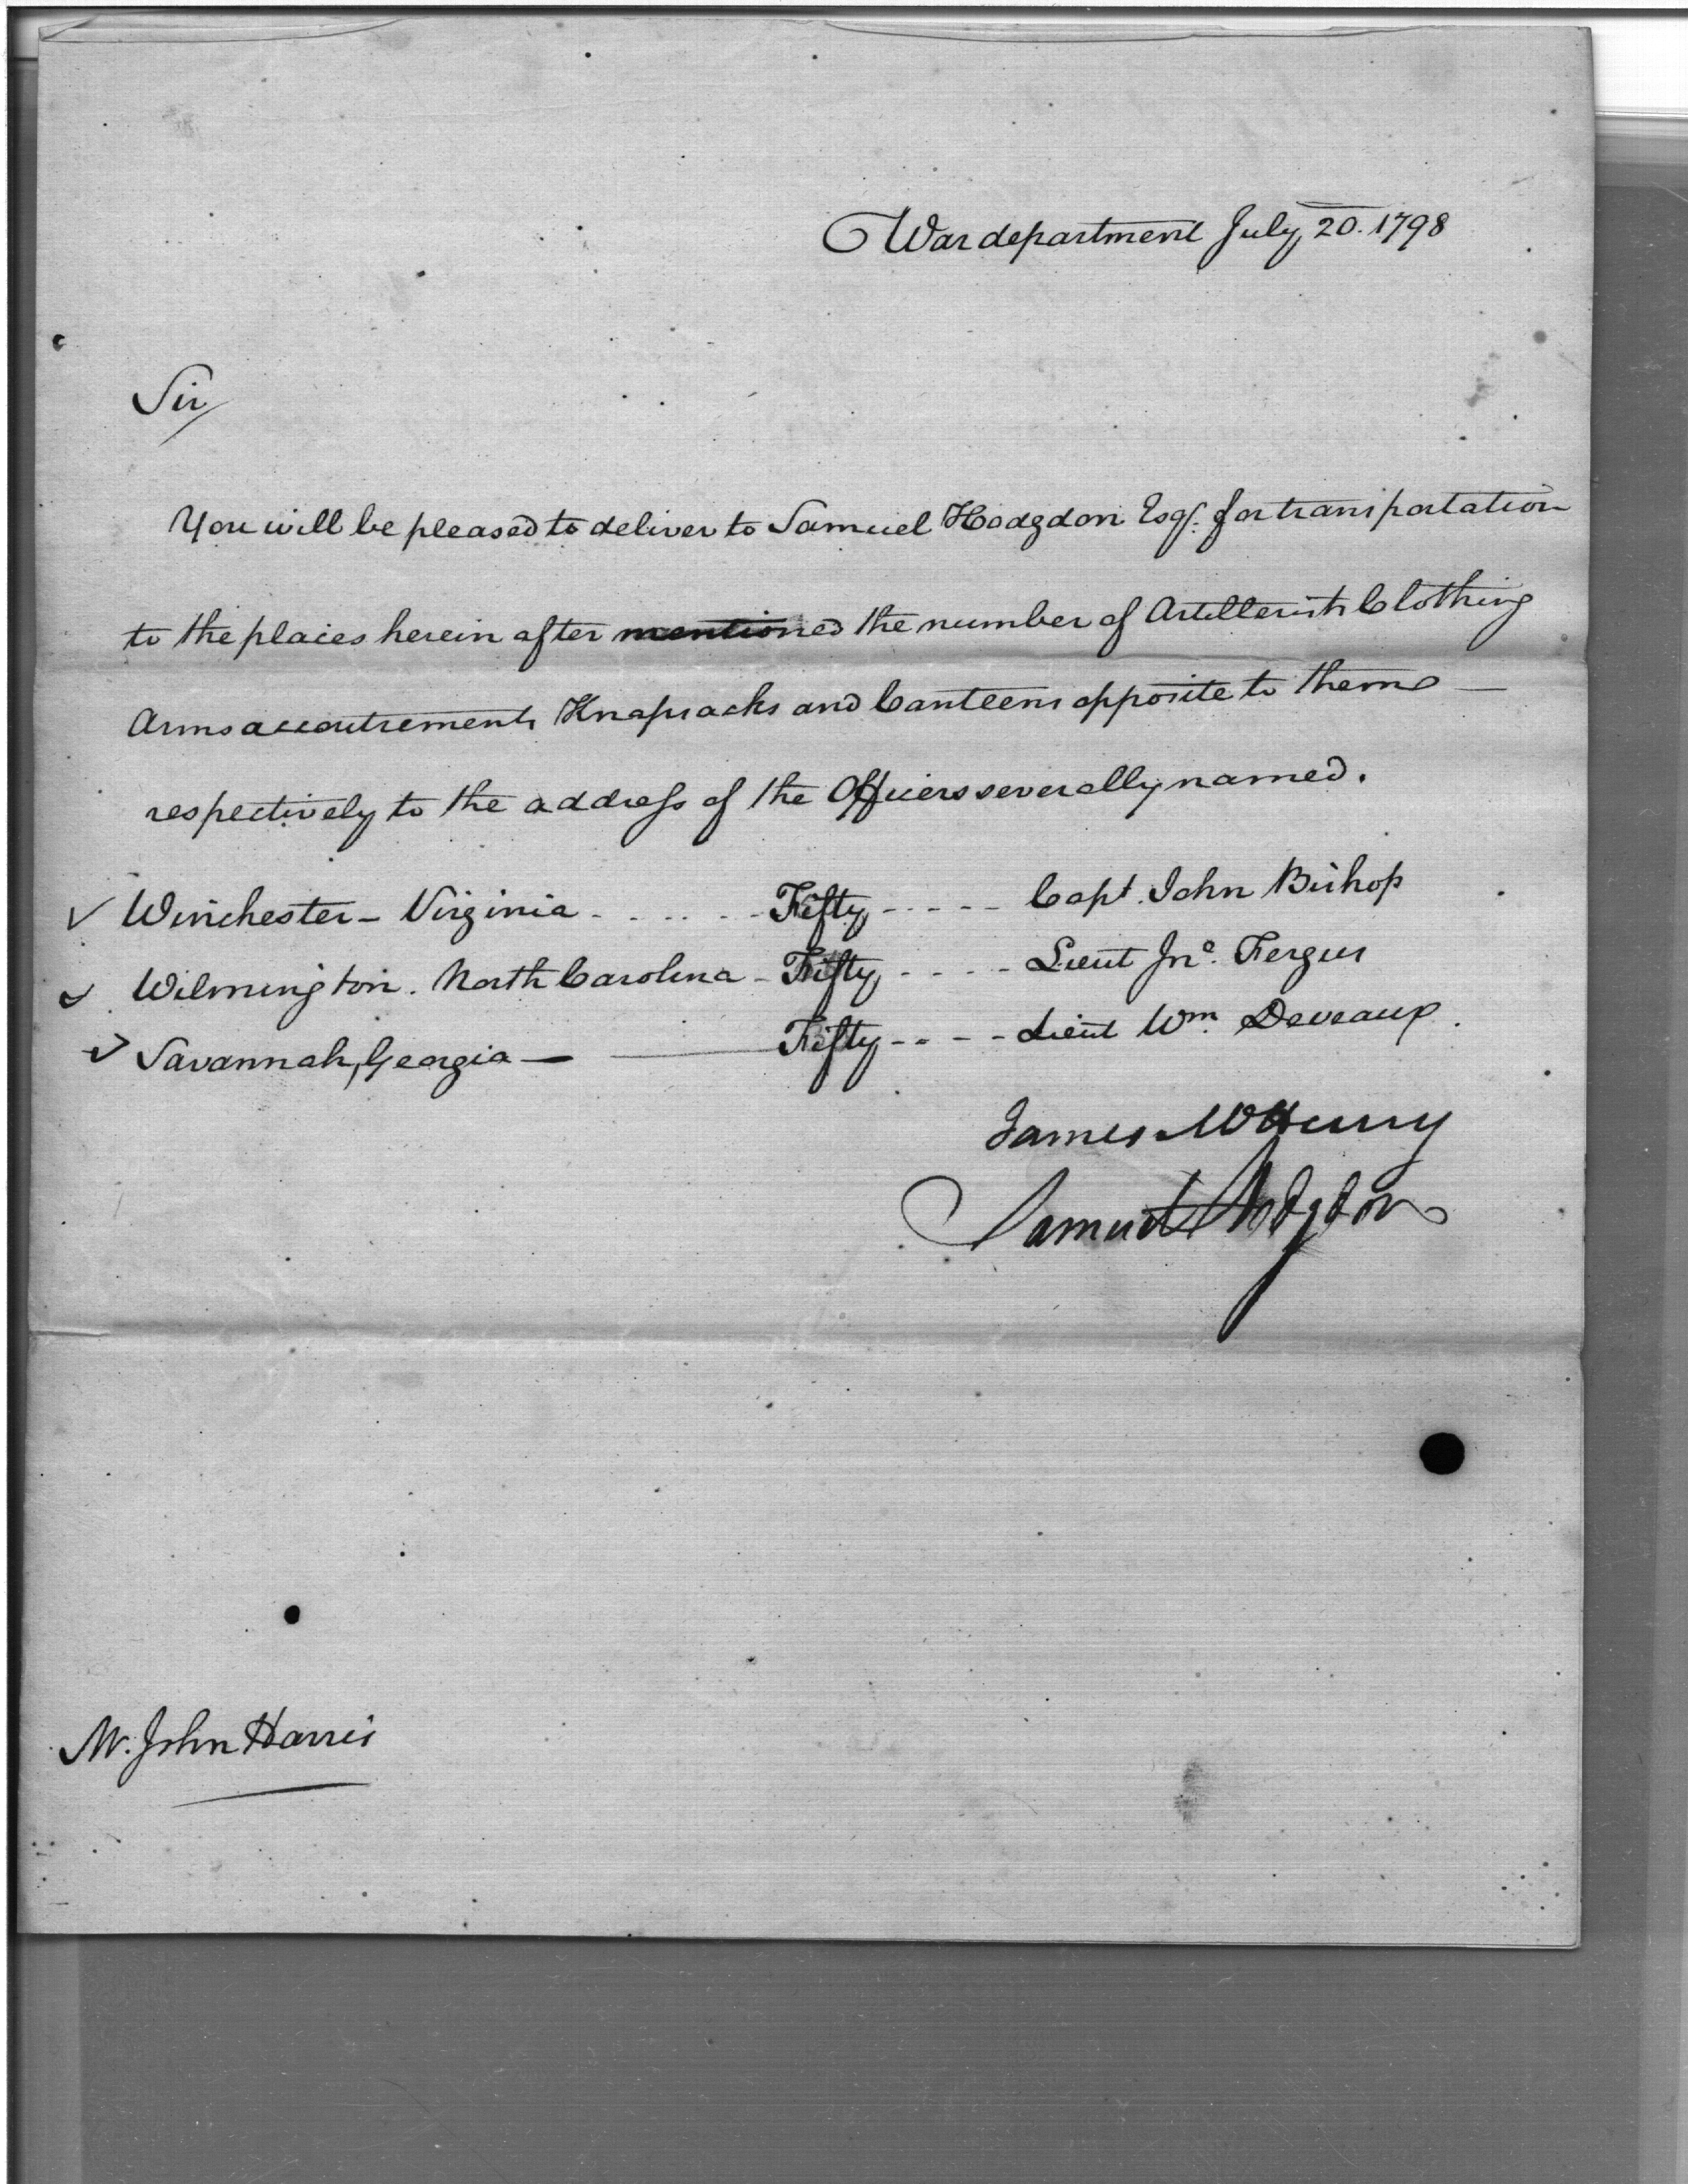 War department July 20. 1798
Sir
You will be pleased to deliver to Samuel Hodgdon Esqr. for transportation
to the places herein after mentioned the number of Artillerists Clothing
Arms accoutrements Knapsacks and Canteens opposite to them —
respectively to the address of the Officers severally named.
✓ Winchester - Virginia - - - - - - Fifty - - - - - Capt. John Bishop
✓ Wilmington. North Carolina - Fifty - - - - Lieut Jno. Fergus
✓ Savannah, Georgia — ——— Fifty - - - - Lieut Wm. Deveaux.
James McHenry
Samuel Hodgdon
Mr. John Harris